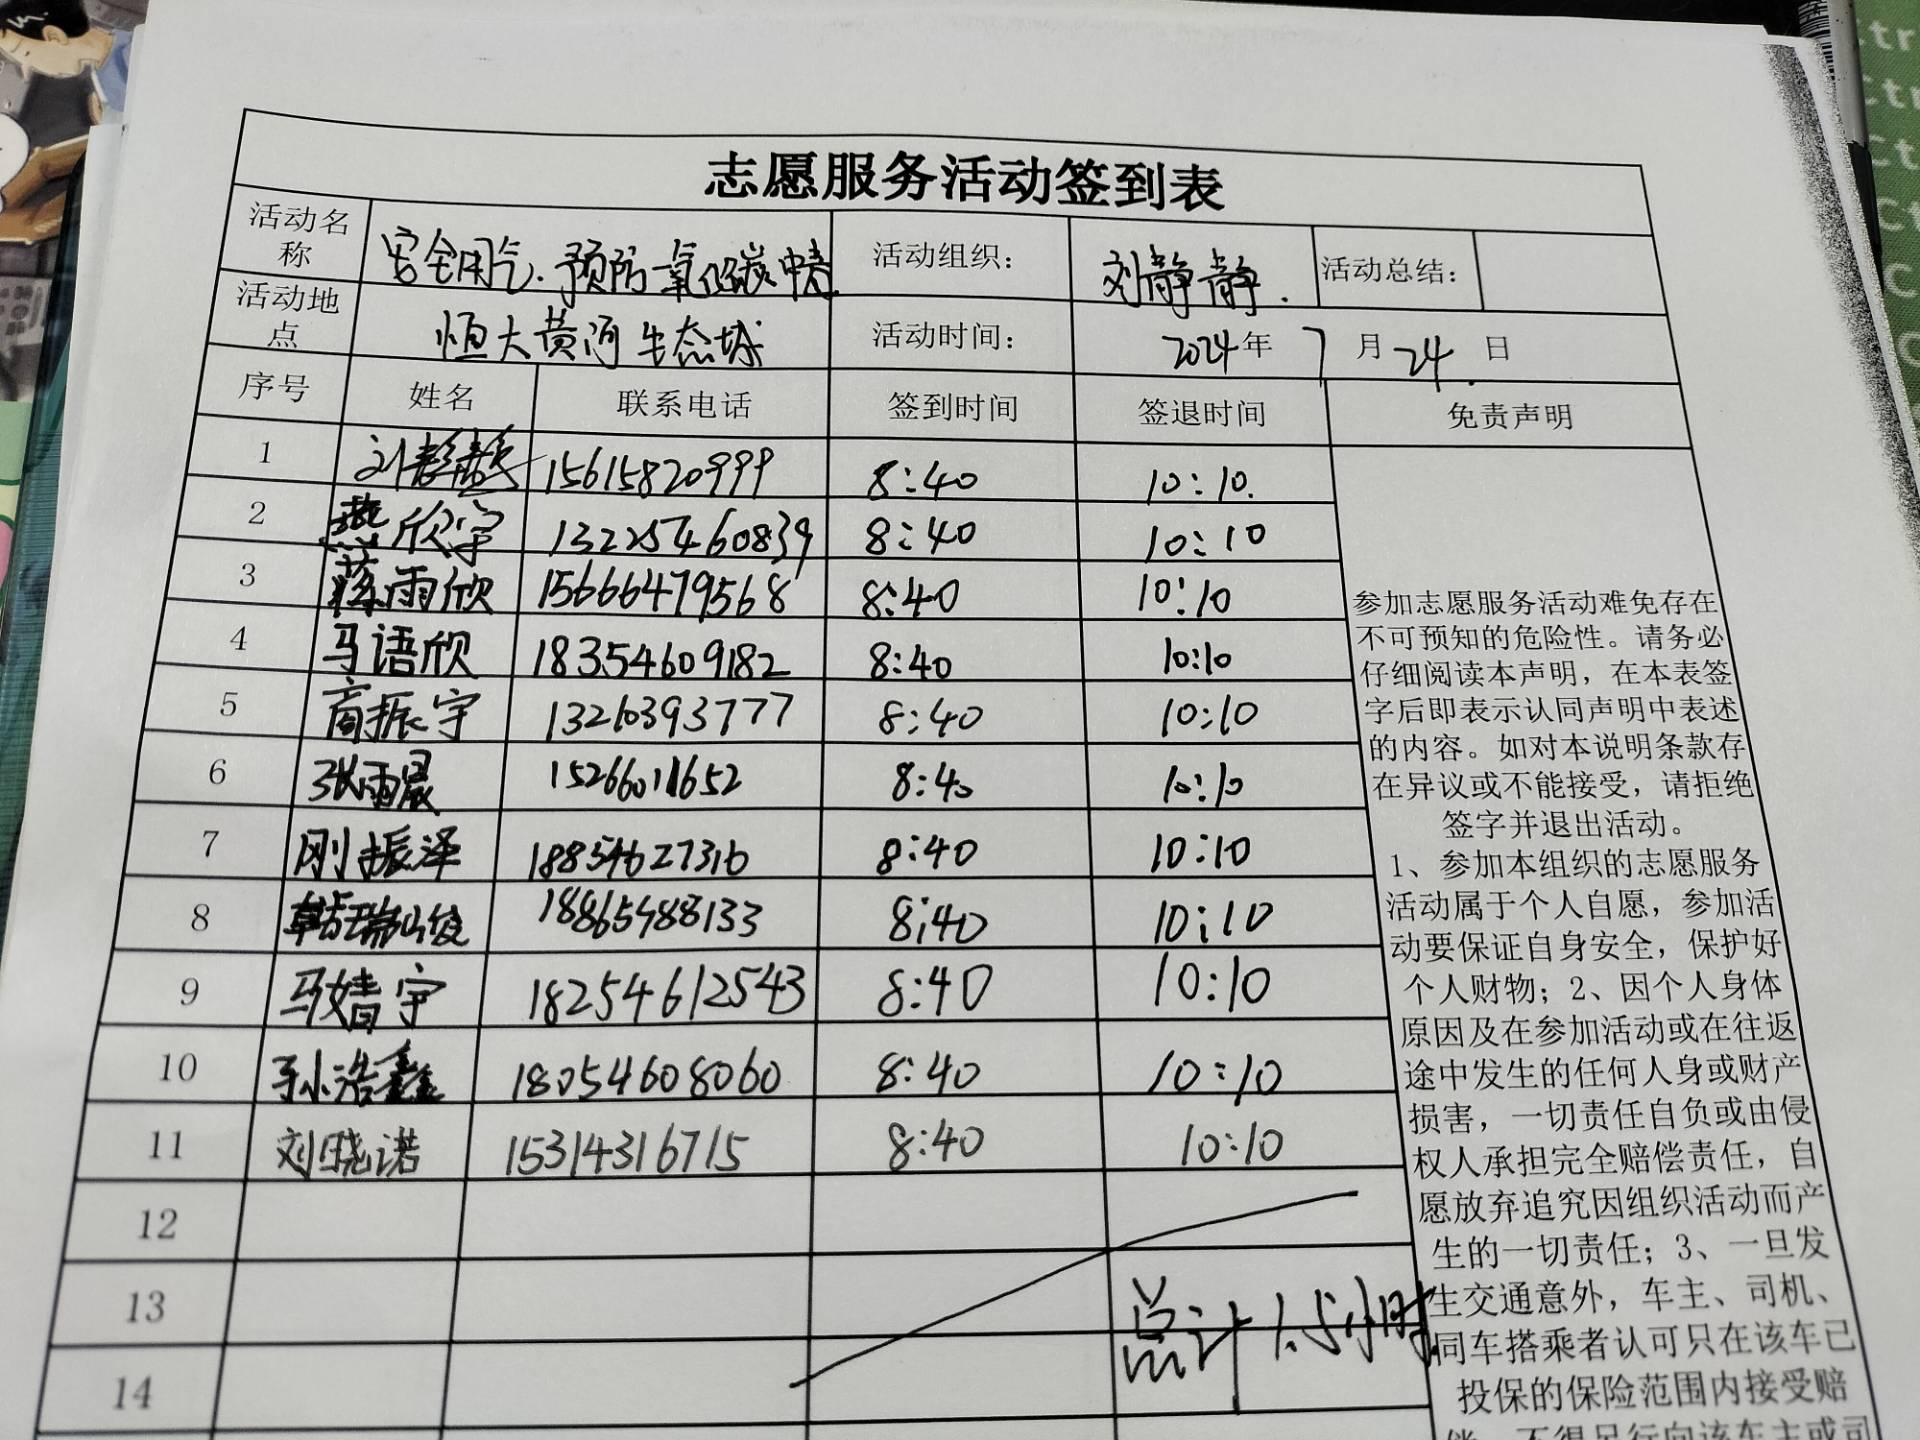 志愿服务活动签到表
活动名称 安全用气、预防一氧化碳中毒 活动组织： 刘静静. 活动总结：
活动地点 恒大黄河生态城 活动时间： 2024年 7月 24日
序号 姓名 联系电话 签到时间 签退时间 免责声明
1 刘静静 15615820999 8:40 10:10.
2 燕欣宇 13225460839 8:40 10:10
3 蒋雨欣 15666479568 8:40 10:10
4 马语欣 18354609182 8:40 10:10
5 商振宇 13260393777 8:40 10:10
6 张雨晨 15266011652 8:40 10:10
7 刚振泽 18854627316 8:40 10:10
8 韩瑞 18865488133 8:40 10:10
9 马婧宇 18254612543 8:40 10:10
10 浩鑫 18054608060 8:40 10:10
11 刘晓诺 15314316715 8:40 10:10
12
13
14
总计 1.5小时
参加志愿服务活动难免存在
不可预知的危险性。请务必
仔细阅读本声明，在本表签
字后即表示认同声明中表述
的内容。如对本说明条款存
在异议或不能接受，请拒绝
签字并退出活动。
1、参加本组织的志愿服务
活动属于个人自愿，参加活
动要保证自身安全，保护好
个人财物；2、因个人身体
原因及在参加活动或在往返
途中发生的任何人身或财产
损害，一切责任自负或由侵
权人承担完全赔偿责任，自
愿放弃追究因组织活动而产
生的一切责任；3、一旦发
生交通意外，车主、司机、
同车搭乘者认可只在该车已
投保的保险范围内接受赔